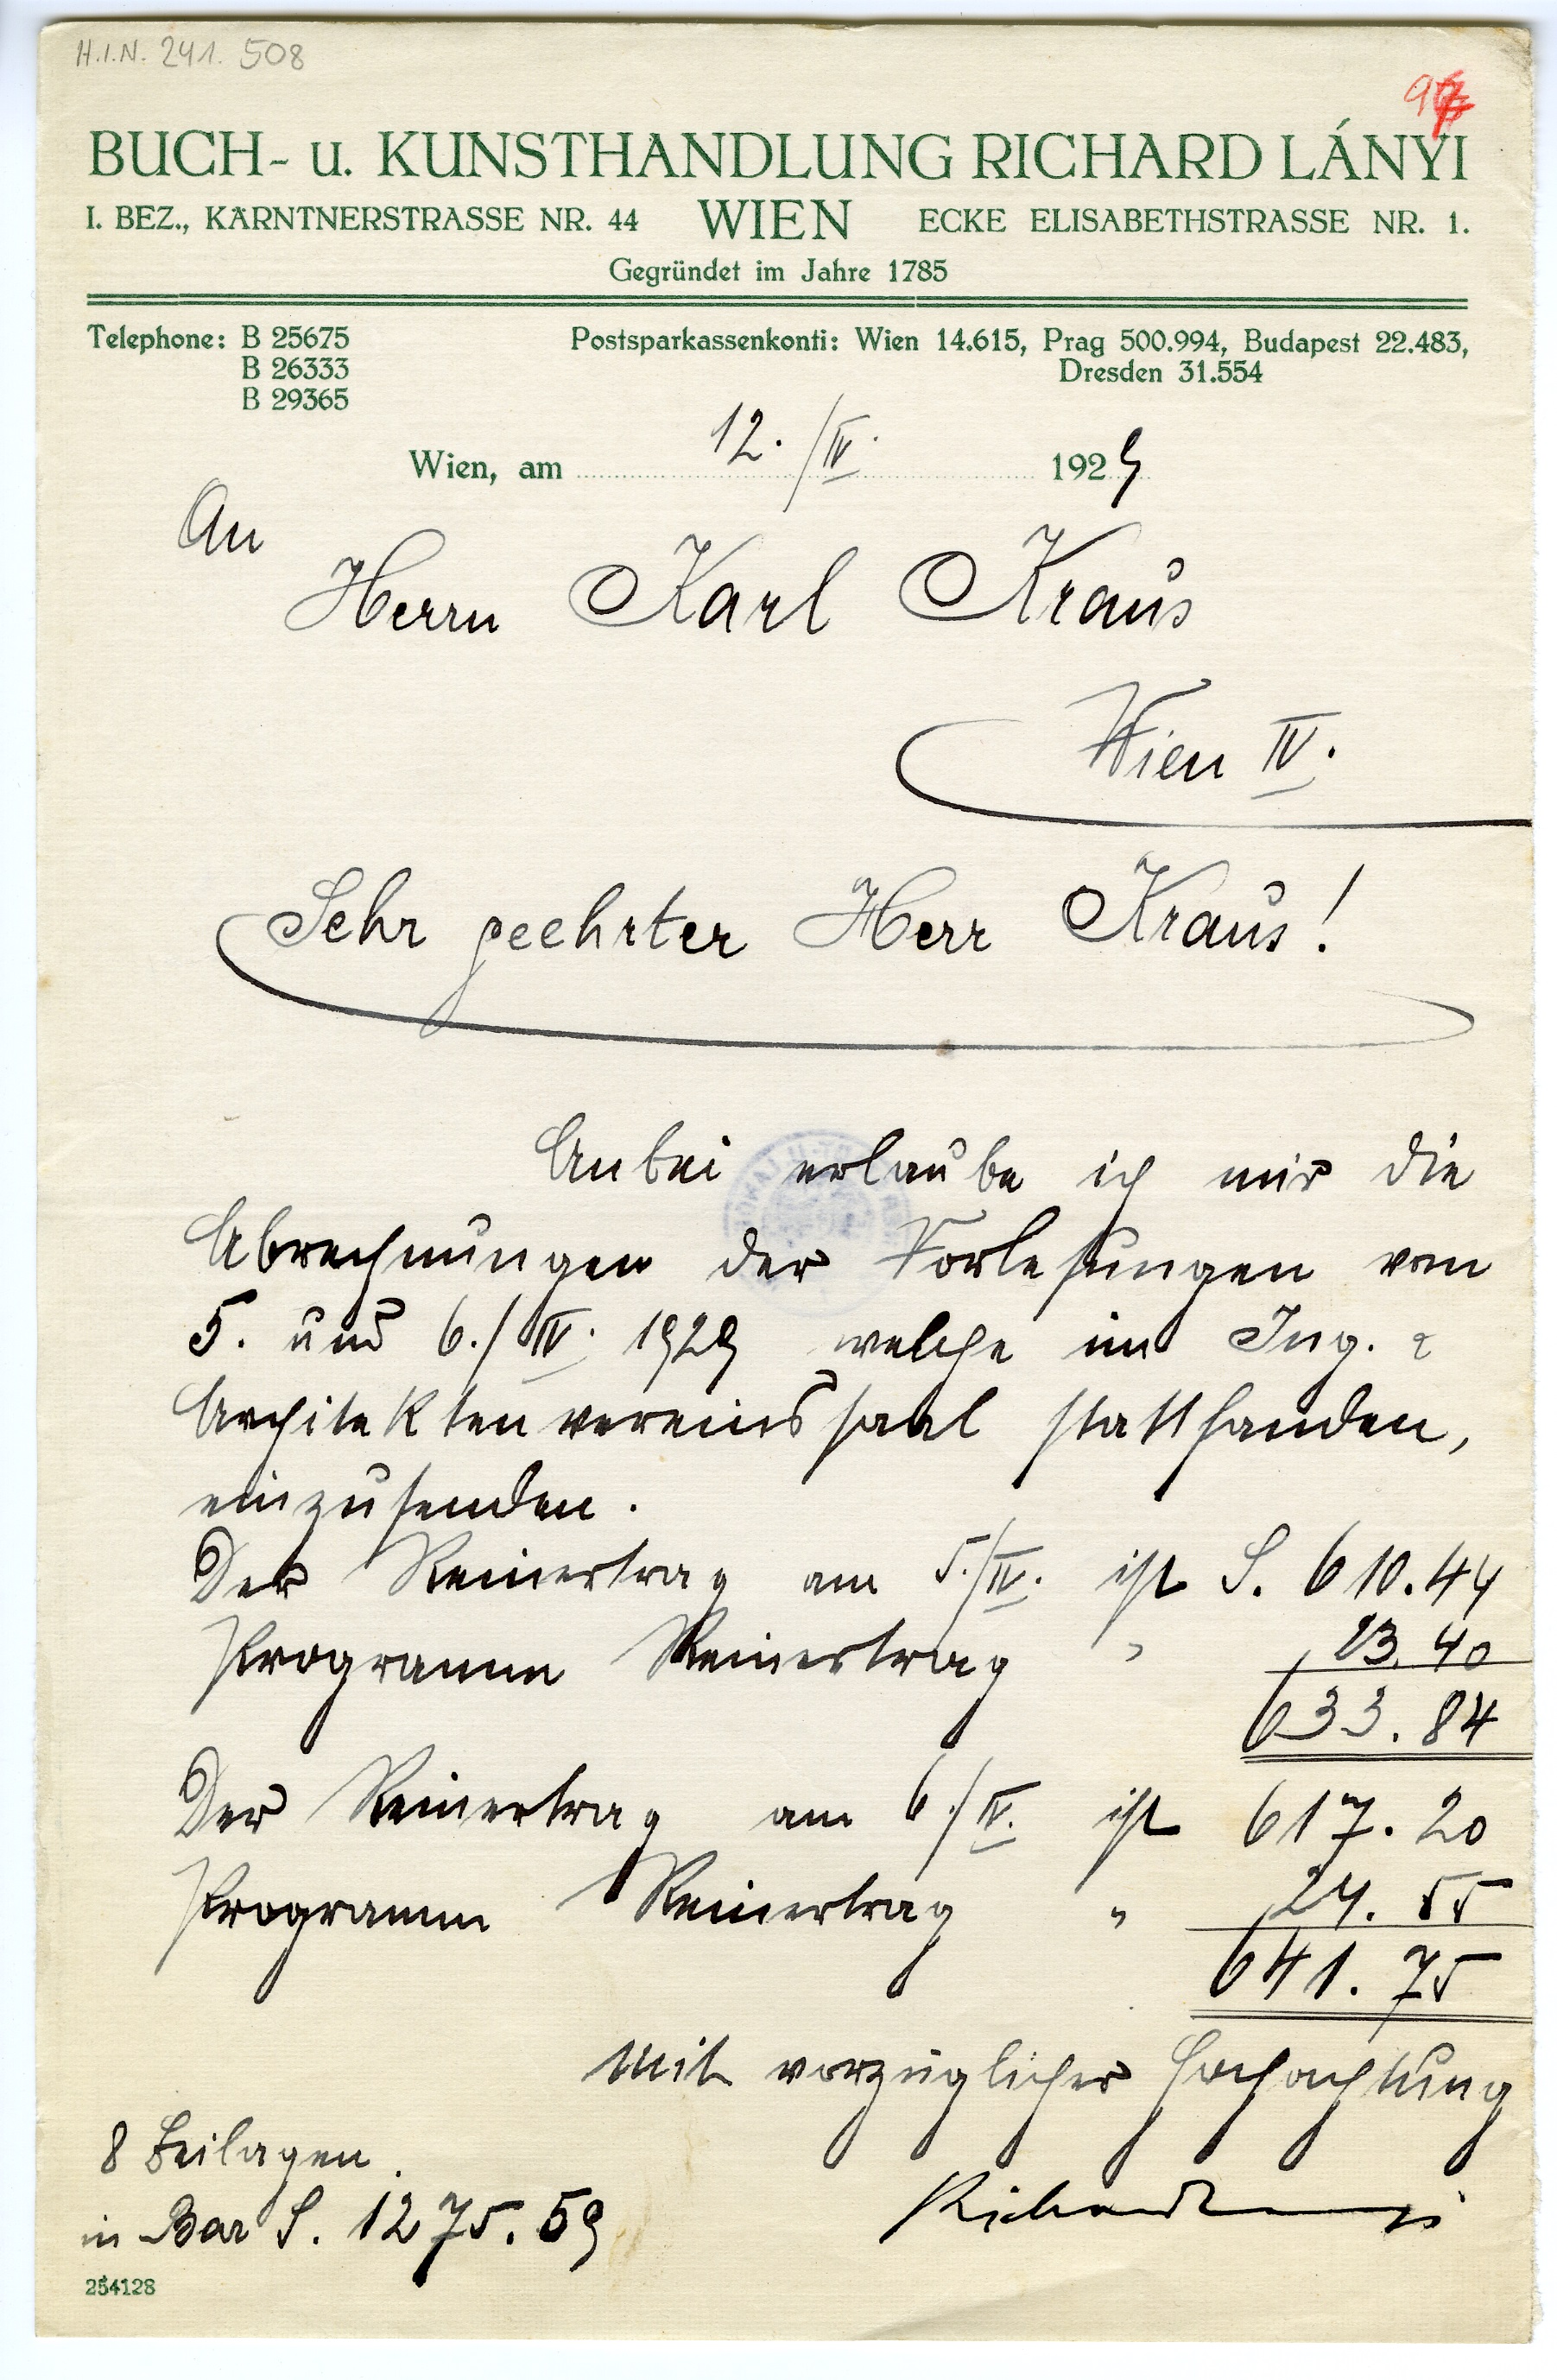 H.I.N. 241.508
BUCH- u. KUNSTHANDLUNG RICHARD LÁNYI
I. BEZ., KÄRNTNERSTRASSE NR. 44 WIEN ECKE ELISABETHSTRASSE NR. 1.
Gegründet im Jahre 1785
Telephone: B 25675
B 26333
B 29365
Postsparkassenkonti: Wien 14.615, Prag 500.994, Budapest 22.483,
Dresden 31.554
Wien, am 12./IV. 1929
An
Herrn Karl Kraus
Wien IV.
Sehr geehrter Herr Kraus!
Anbei erlaube ich mir die
Abrechnungen der Vorlesungen vom
5. und 6./IV. 1929 welche im Ing. &
Architektenvereinssaal stattfanden,
einzusenden.
Der Reinertrag am 5./IV. ist S. 610.44
Programm Reinertrag " 23.40
633.84
Der Reinertrag am 6./IV. ist 617.20
Programm Reinertrag " 24.55
641.75
Mit vorzüglicher Hochachtung
8 Beilagen.
in Bar S. 1275.59
Richard Lányi
254128